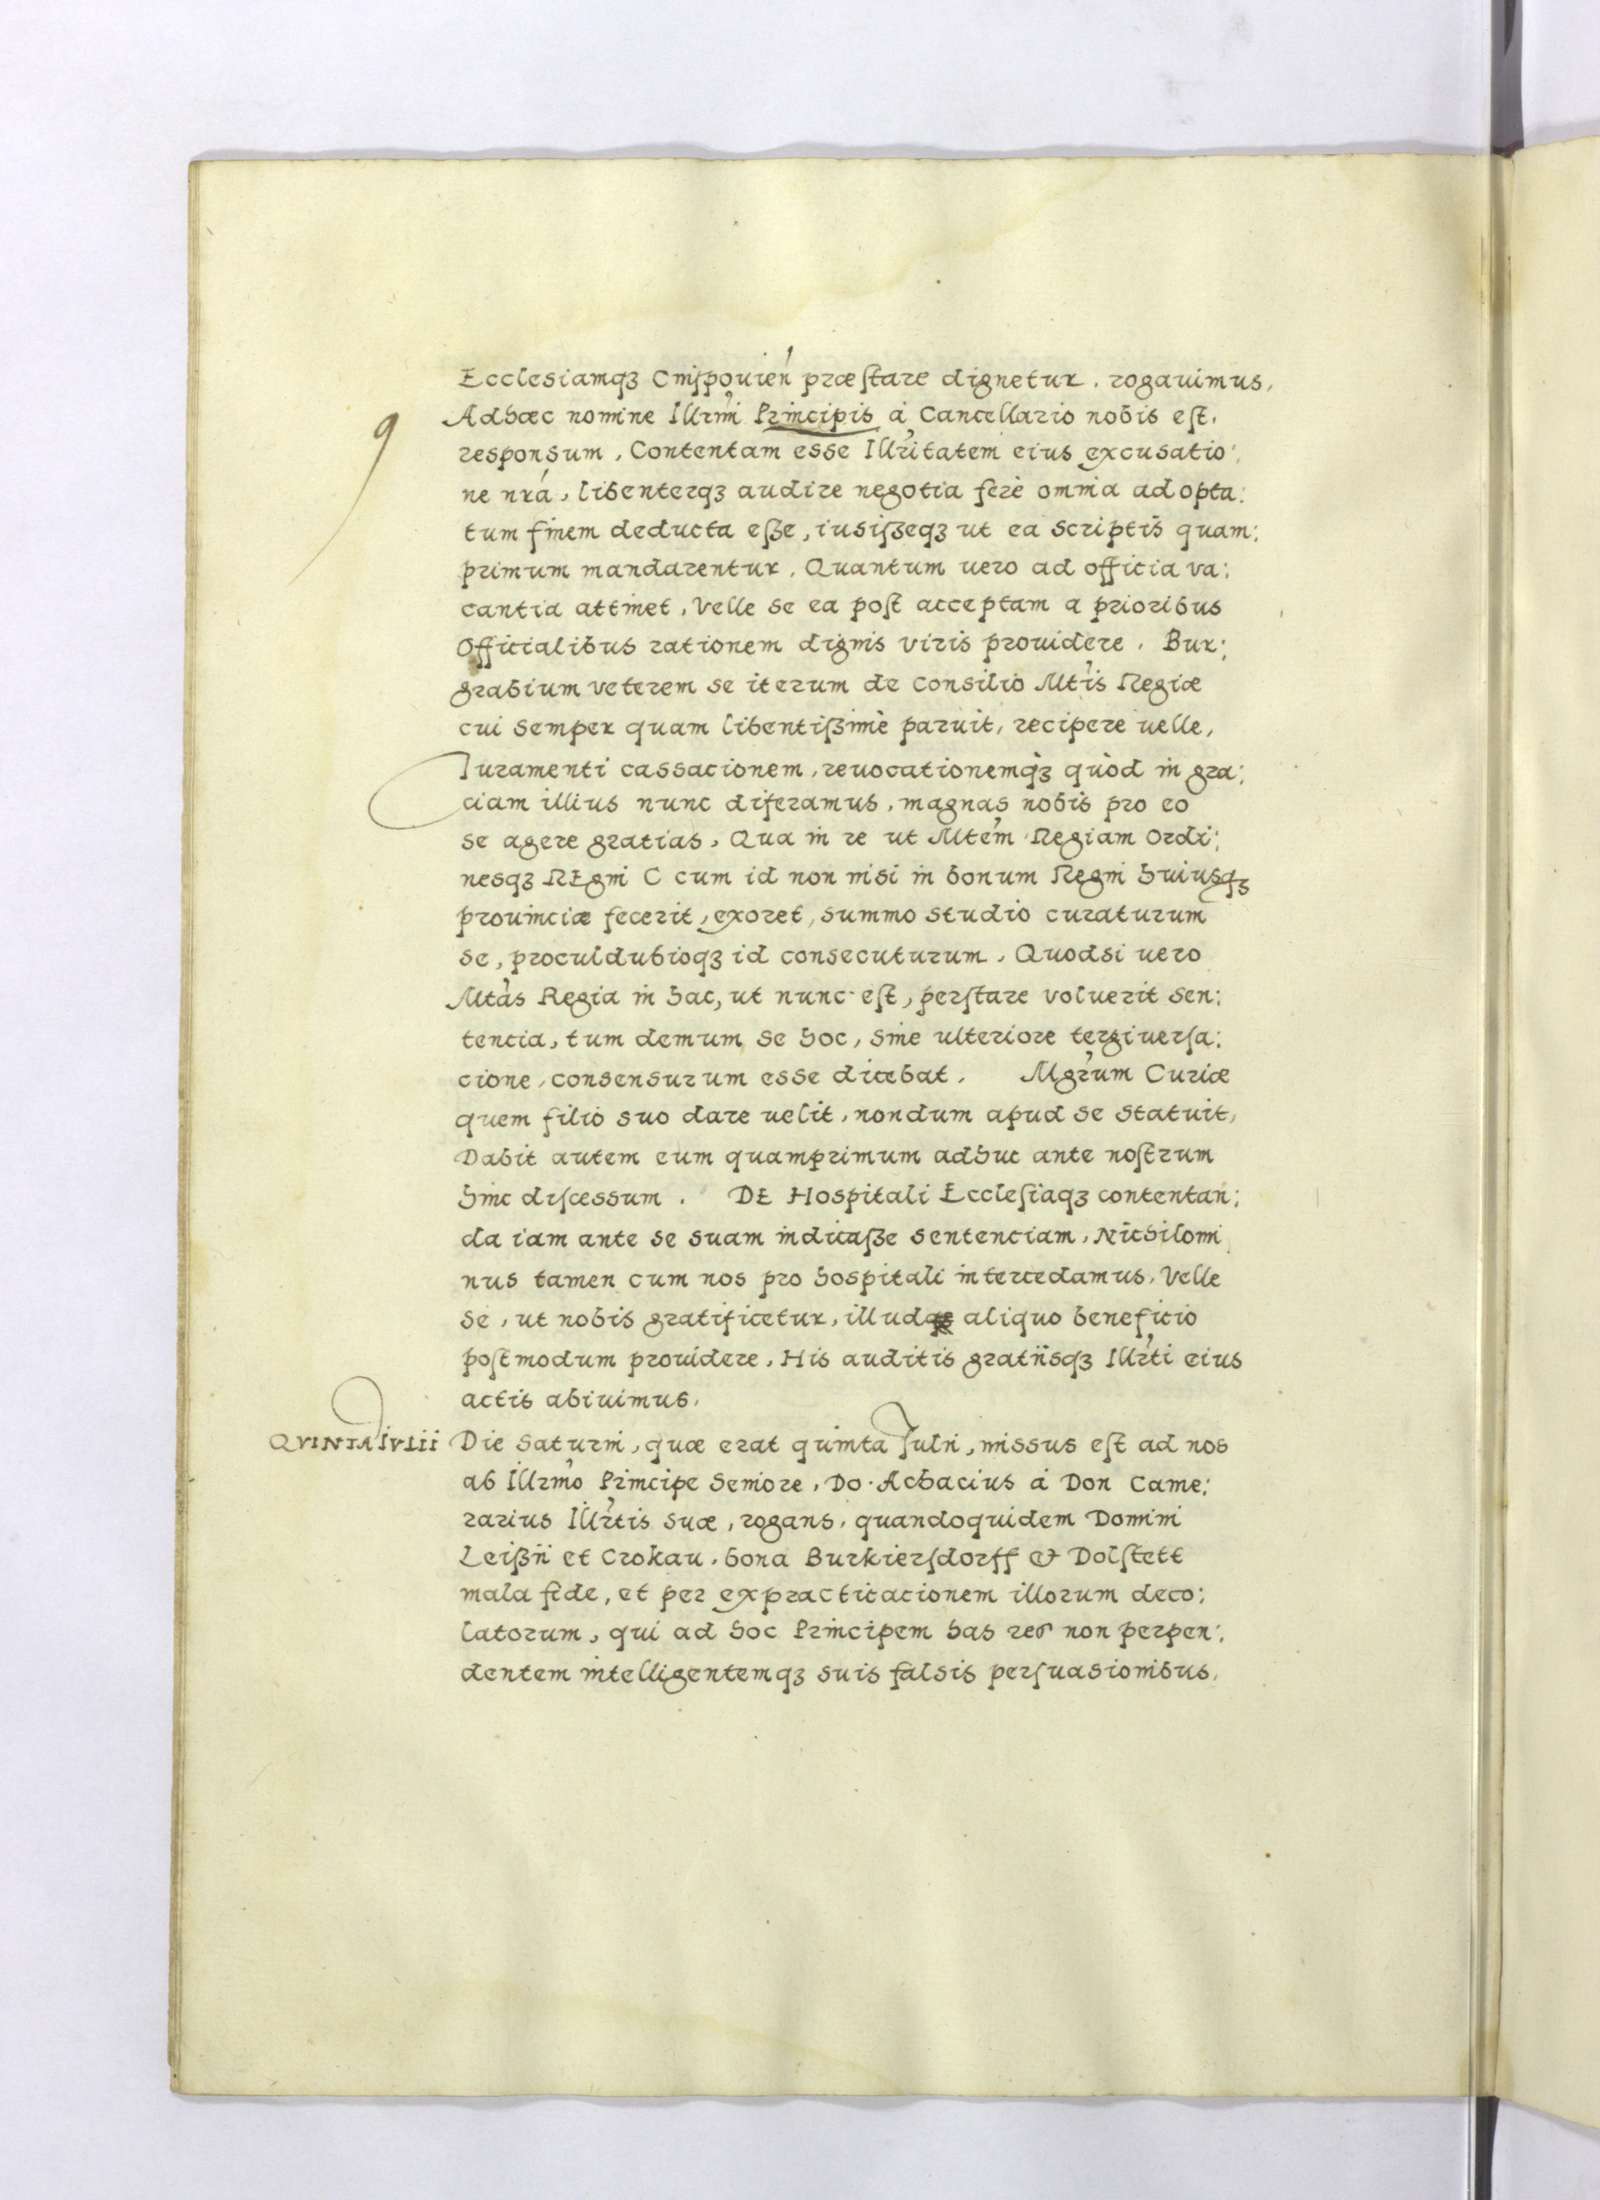 Ecclesiamqꝫ Cnispouień præstare dignetur, rogauimus,
Adhæc nomine Illrmi Principis á Cancellario nobis est,
responsum, Contentam esse Illritatem eius excusatio:
ne nrá, libenterqꝫ audire negotia ferè omnia ad opta:
tum finem deducta eßе, iusißeqꝫ ut ea scriptis quam:
primum mandarentur, Quantum uero ad officia va:
cantia attinet, velle se ea post acceptam a prioribus
Officialibus rationem dignis viris prouidere, Bur:
grabium veterem se iterum de consilio Mtis Regiæ
cui semper quam libentißimè paruit, recipere uelle,
Iuramenti cassacionem, reuocationemqꝫ quòd in gra:
ciam illius nunc diferamus, magnas nobis pro eo
se agere gratias, Qua in re ut Mtem Regiam Ordi:
nesqꝫ REgni C cum id non nisi in bonum Regni huiusqꝫ
prouinciæ fecerit, exoret, summo studio curaturum
se, proculdubioqꝫ id consecuturum, Quodsi uero
Mtas Regia in hac, ut nunc est, perstare voluerit sen:
tencia, tum demum se hoc, sine ulteriore tergiuersa:
cione, consensurum esse dicebat, Mgrum Curiæ
quem filio suo dare uelit, nondum apud se statuit,
Dabit autem eum quamprimum adhuc ante nostrum
hinc discessum. DE Hospitali Ecclesiaqꝫ contentan:
da iam ante se suam indicaße sentenciam, Nichilomi
nus tamen cum nos pro hospitali intercedamus, Velle
se, ut nobis gratificetur, illud aliquo beneficio
postmodum prouidere, His auditis gratiisqꝫ Illrti eius
actis abiuimus,
QVINTA IVLii Die Saturni, quæ erat quinta Julii, missus est ad nos
ab Illrmo Principe Seniore, Do. Achacius á Don Came:
rarius Illrtis suæ, rogans, quandoquidem Domini
Leißii et Crokau, bona Burkiersdorff & Dolstett
mala fide, et per expracticacionem illorum deco:
latorum, qui ad hoc Principem has res non perpen:
dentem intelligentemqꝫ suis falsis persuasionibus,